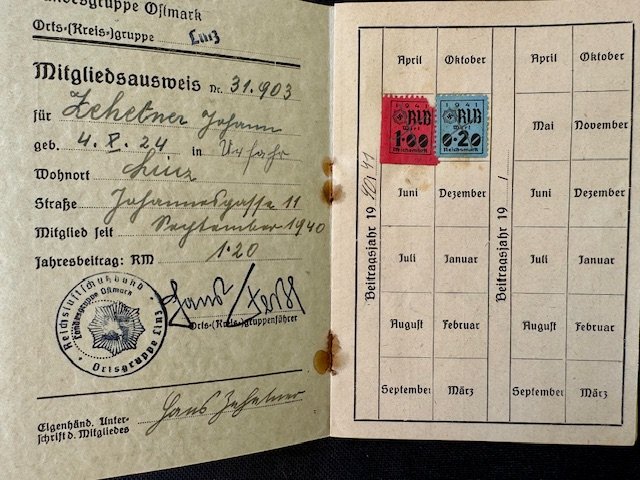 Landesgruppe Ostmark
Orts-(Kreis-)gruppe Linz
Mitgliedsausweis Nr. 31.903
für Zehetner Johann
geb. 4. X. 24 in Urfahr
Wohnort Linz
Straße Johannesgasse 11
Mitglied seit September 1940
Jahresbeitrag: RM 1.20
Reichsluftschutzbund
Landesgruppe Ostmark
Ortsgruppe Linz
Orts-(Kreis-)gruppenführer
Eigenhänd. Unter-
schrift d. Mitgliedes
Hans Zehetner
Beitragsjahr 19 40/41
April Oktober
1941
RLB
Wert
1·00
Reichsmark
1941
RLB
Wert
0·20
Reichsmark
Juni Dezember
Juli Januar
August Februar
September März
Beitragsjahr 19 /
April Oktober
Mai November
Juni Dezember
Juli Januar
August Februar
September März